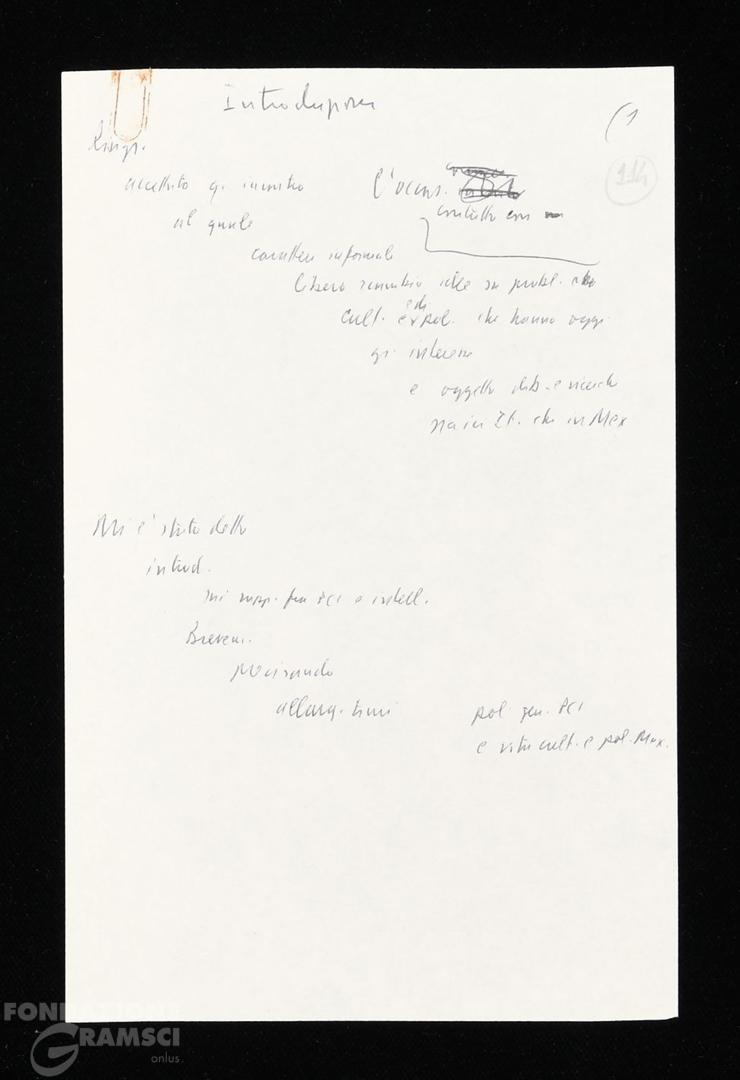 Introduzione
(1
114
Ringr.
accettato q. incontro
l'occas.
al quale
contatto con
carattere informale
libero scambio idee su probl.
cult. e di pol. che hanno oggi
gr. interesse
e oggetto dib. e ricerche
sia in It. che in Mex
Mi è stato detto
introd.
sui rapp. fra PCI e intell.
Brevem.
Mirando
allarg. temi
pol. gen. PCI
e vita cult. e pol. Mex.
FONDAZIONE
GRAMSCI
onlus